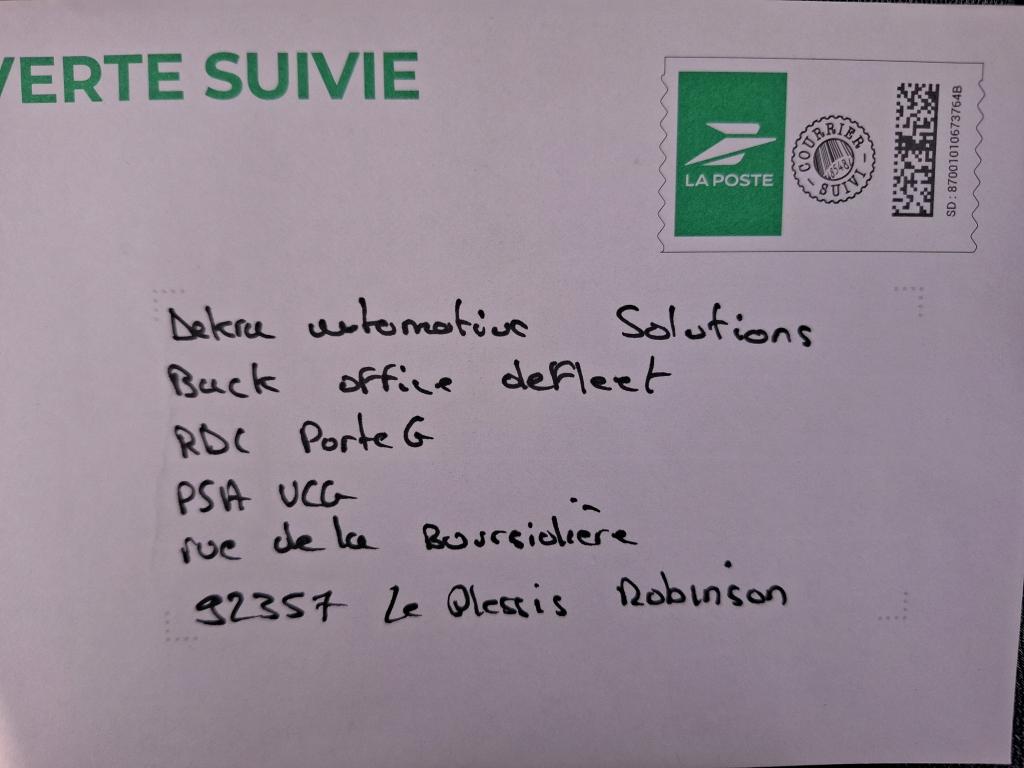 VERTE SUIVIE
LA POSTE
COURRIER
SUIVI
SD : 87001010673764B
Dekra automotive Solutions
Back office deFleet
RDC Porte G
PSA UCG
rue de la Boursidière
92357 Le Plessis Robinson